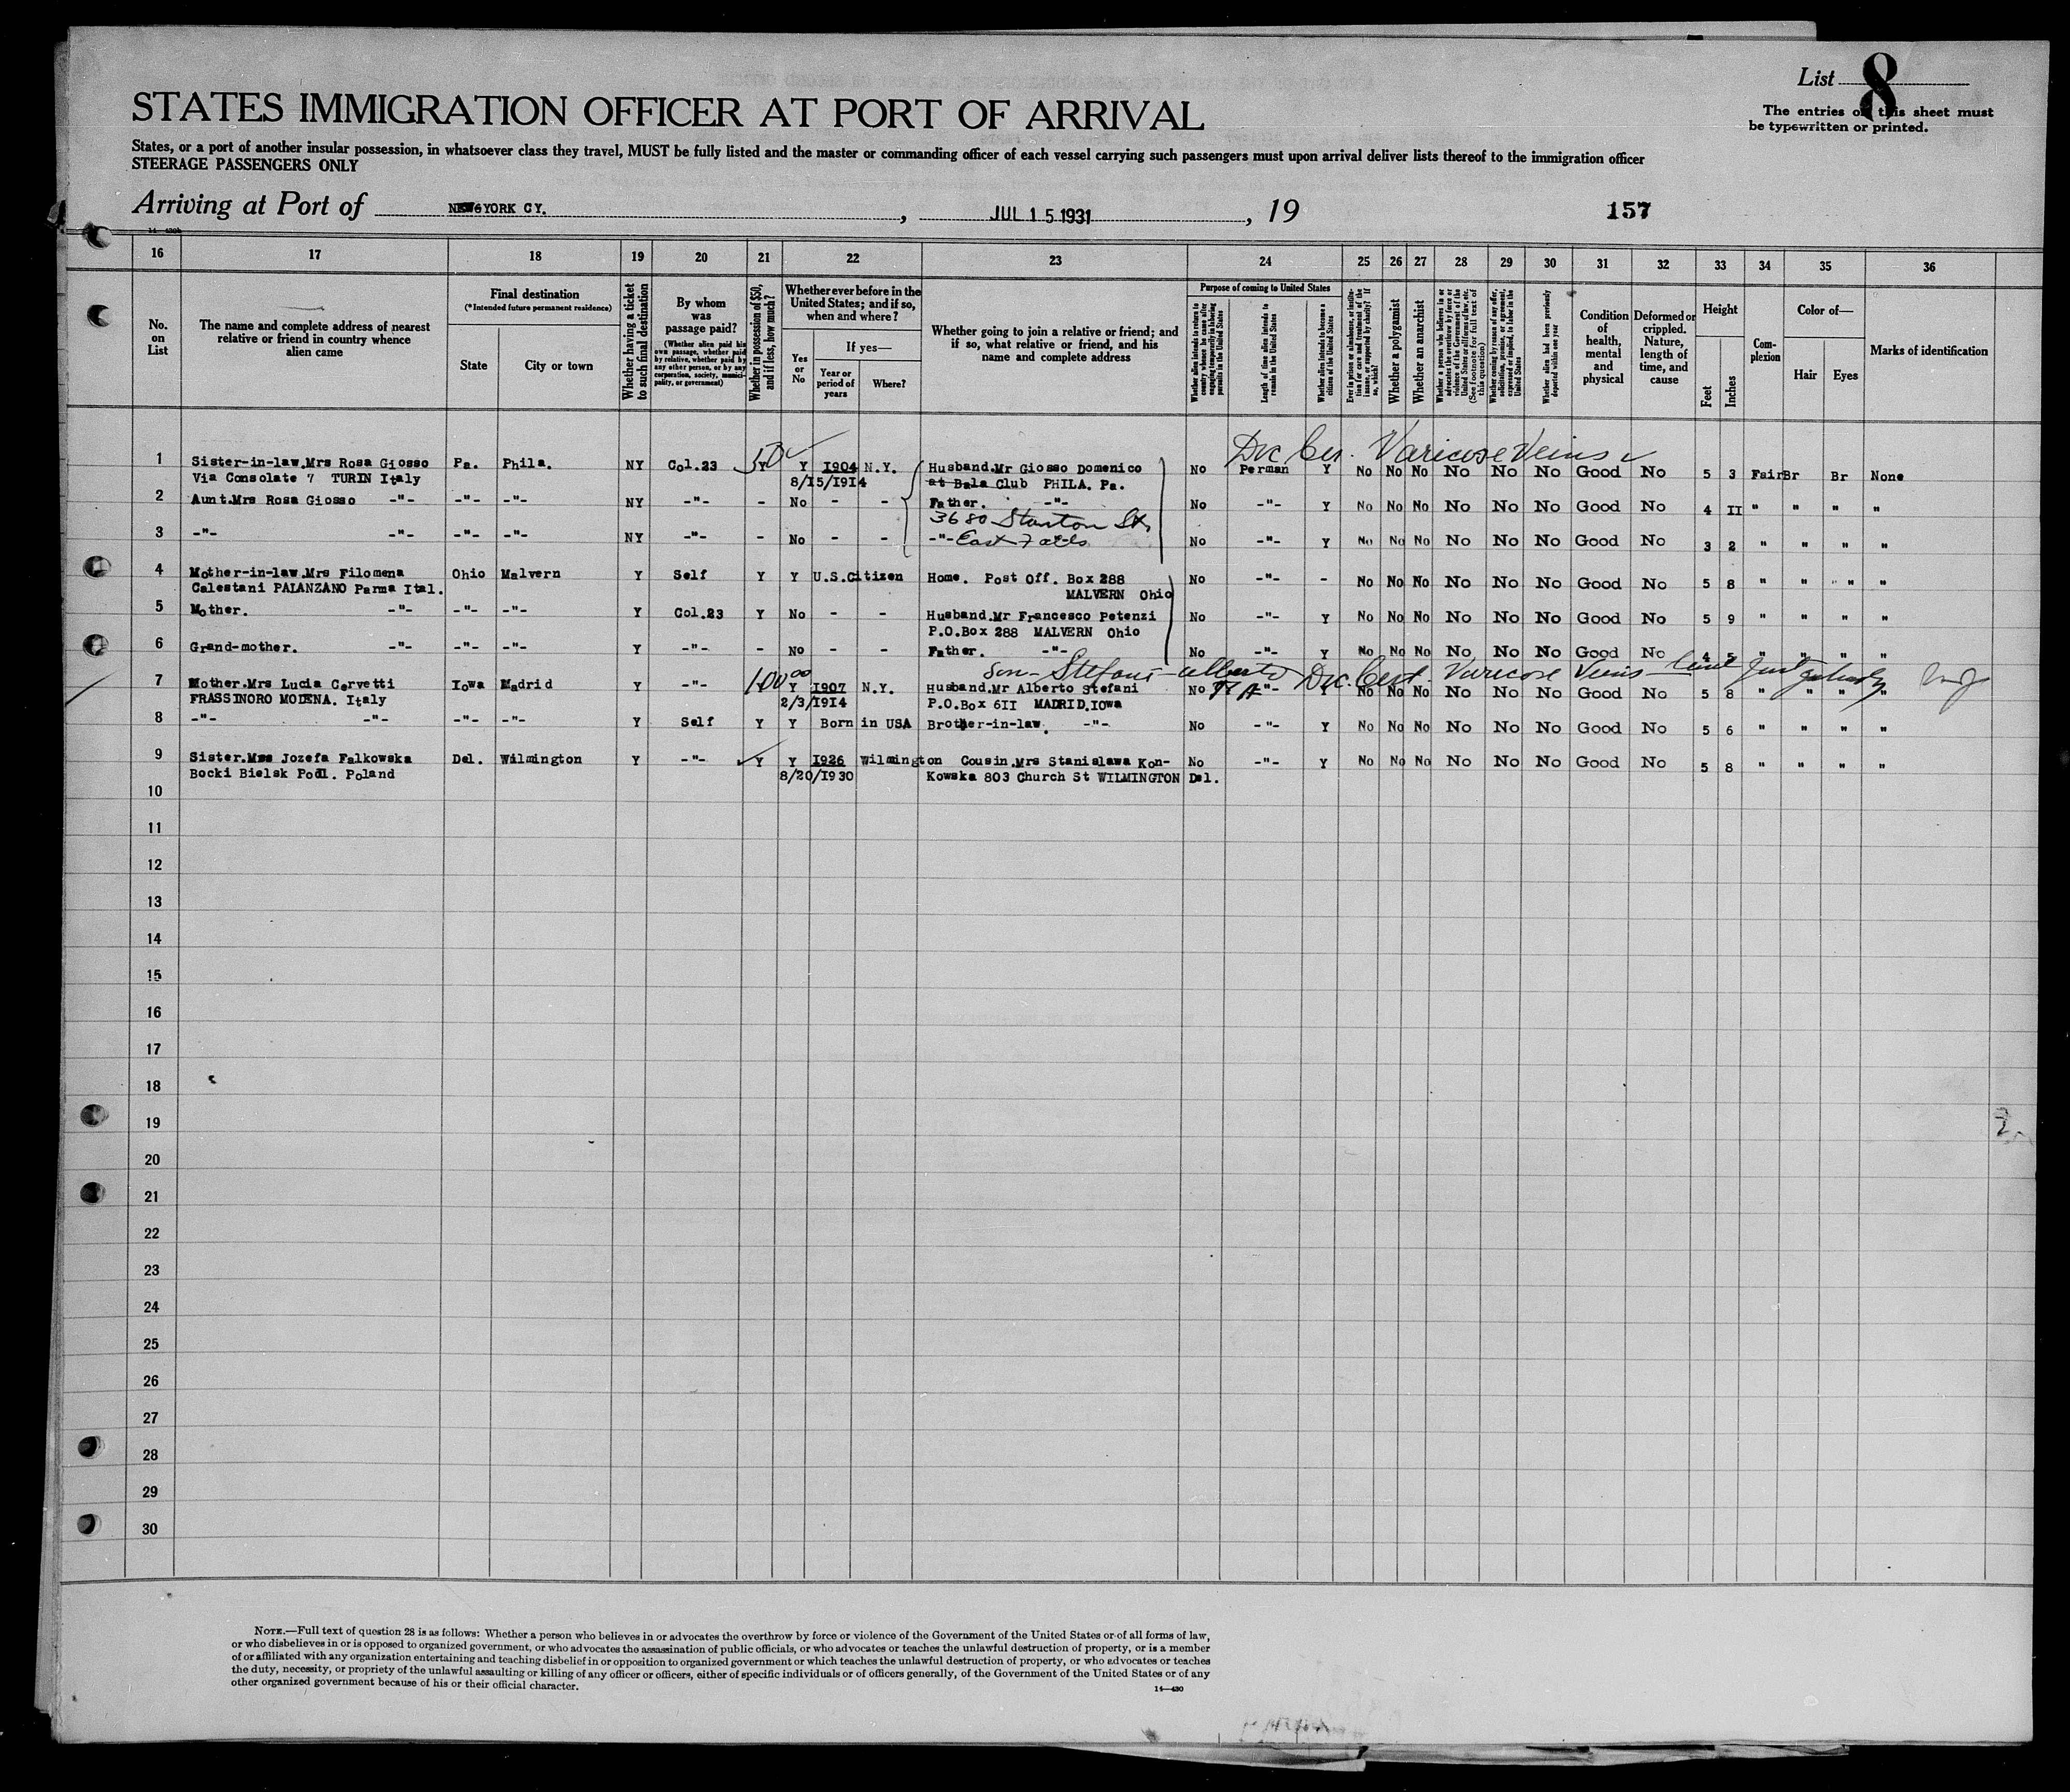 List 8
STATES IMMIGRATION OFFICER AT PORT OF ARRIVAL
The entries on this sheet must
be typewritten or printed.
States, or a port of another insular possession, in whatsoever class they travel, MUST be fully listed and the master or commanding officer of each vessel carrying such passengers must upon arrival deliver lists thereof to the immigration officer
STEERAGE PASSENGERS ONLY
Arriving at Port of NEW YORK CY. , JUL 15 1931 , 19 157
16 17 18 19 20 21 22 23 24 25 26 27 28 29 30 31 32 33 34 35 36
No. on List
The name and complete address of nearest relative or friend in country whence alien came
Final destination
(*Intended future permanent residence)
State
City or town
Whether having a ticket to such final destination
By whom was passage paid?
(Whether alien paid his own passage, whether paid by relative, whether paid by any other person, or by any corporation, society, municipality, or government)
Whether in possession of $50, and if less, how much?
Whether ever before in the United States; and if so, when and where?
Yes or No
If yes—
Year or period of years
Where?
Whether going to join a relative or friend; and if so, what relative or friend, and his name and complete address
Purpose of coming to United States
Whether alien intends to return to country whence he came after engaging temporarily in laboring pursuits in the United States
Length of time alien intends to remain in the United States
Whether alien intends to become a citizen of the United States
Ever in prison or almshouse, or institution for care and treatment of the insane, or supported by charity? If so, which?
Whether a polygamist
Whether an anarchist
Whether a person who believes in or advocates the overthrow by force or violence of the Government of the United States or all forms of law, etc. (See footnote for full text of this question)
Whether coming by reason of any offer, solicitation, promise, or agreement, expressed or implied, to labor in the United States
Whether alien had been previously deported within one year
Condition of health, mental and physical
Deformed or crippled. Nature, length of time, and cause
Height
Feet
Inches
Complexion
Color of—
Hair
Eyes
Marks of identification
Varicose Veins
1 Sister-in-law.Mrs Rosa Giosso Pa. Phila. NY Col.23 50 Y Y 1904 N.Y. Husband.Mr Giosso Domenico No Perman Y No No No No No No Good No 5 3 Fair Br Br None
Via Consolate 7 TURIN Italy 8/15/1914 at Bala Club PHILA. Pa.
2 Aunt.Mrs Rosa Giosso -"- -"- -"- NY -"- - No - - Father. -"- No -"- Y No No No No No No Good No 4 II " " " "
3680 Stanton St.
3 -"- -"- -"- -"- NY -"- - No - - -"- East Falls No -"- Y No No No No No No Good No 3 2 " " " "
4 Mother-in-law.Mrs Filomena Ohio Malvern Y Self Y Y U.S.Citizen Home. Post Off. Box 288 No -"- - No No No No No No Good No 5 8 " " " "
Calestani PALANZANO Parma Ital. MALVERN Ohio
5 Mother. -"- -"- -"- Y Col.23 Y No - - Husband.Mr Francesco Petenzi No -"- Y No No No No No No Good No 5 9 " " " "
P.O.Box 288 MALVERN Ohio
6 Grand-mother. -"- -"- -"- Y -"- - No - - Father. -"- No -"- Y No No No No No No Good No 4 5 " " " "
Son - Stefani - Alberto Doc. Cert. Varicose Veins
7 Mother.Mrs Lucia Cervetti Iowa Madrid Y -"- 100.00 Y 1907 N.Y. Husband.Mr Alberto Stefani No -"- Y No No No No No No Good No 5 8 " " " "
FRASSINORO MODENA. Italy 2/3/1914 P.O.Box 6II MADRID.Iowa
8 -"- -"- -"- -"- Y Self Y Y Born in USA Brother-in-law. -"- No -"- Y No No No No No No Good No 5 6 " " " "
9 Sister.Mss Jozefa Falkowska Del. Wilmington Y -"- Y Y I926 Wilmington Cousin.Mrs Stanislawa Kon- No -"- Y No No No No No No Good No 5 8 " " " "
Bocki Bielsk Podl. Poland 8/20/1930 Kowska 803 Church St WILMINGTON Del.
10
11
12
13
14
15
16
17
18
19
20
21
22
23
24
25
26
27
28
29
30
NOTE.—Full text of question 28 is as follows: Whether a person who believes in or advocates the overthrow by force or violence of the Government of the United States or of all forms of law,
or who disbelieves in or is opposed to organized government, or who advocates the assassination of public officials, or who advocates or teaches the unlawful destruction of property, or is a member
of or affiliated with any organization entertaining and teaching disbelief in or opposition to organized government or which teaches the unlawful destruction of property, or who advocates or teaches
the duty, necessity, or propriety of the unlawful assaulting or killing of any officer or officers, either of specific individuals or of officers generally, of the Government of the United States or of any
other organized government because of his or their official character.
14—430